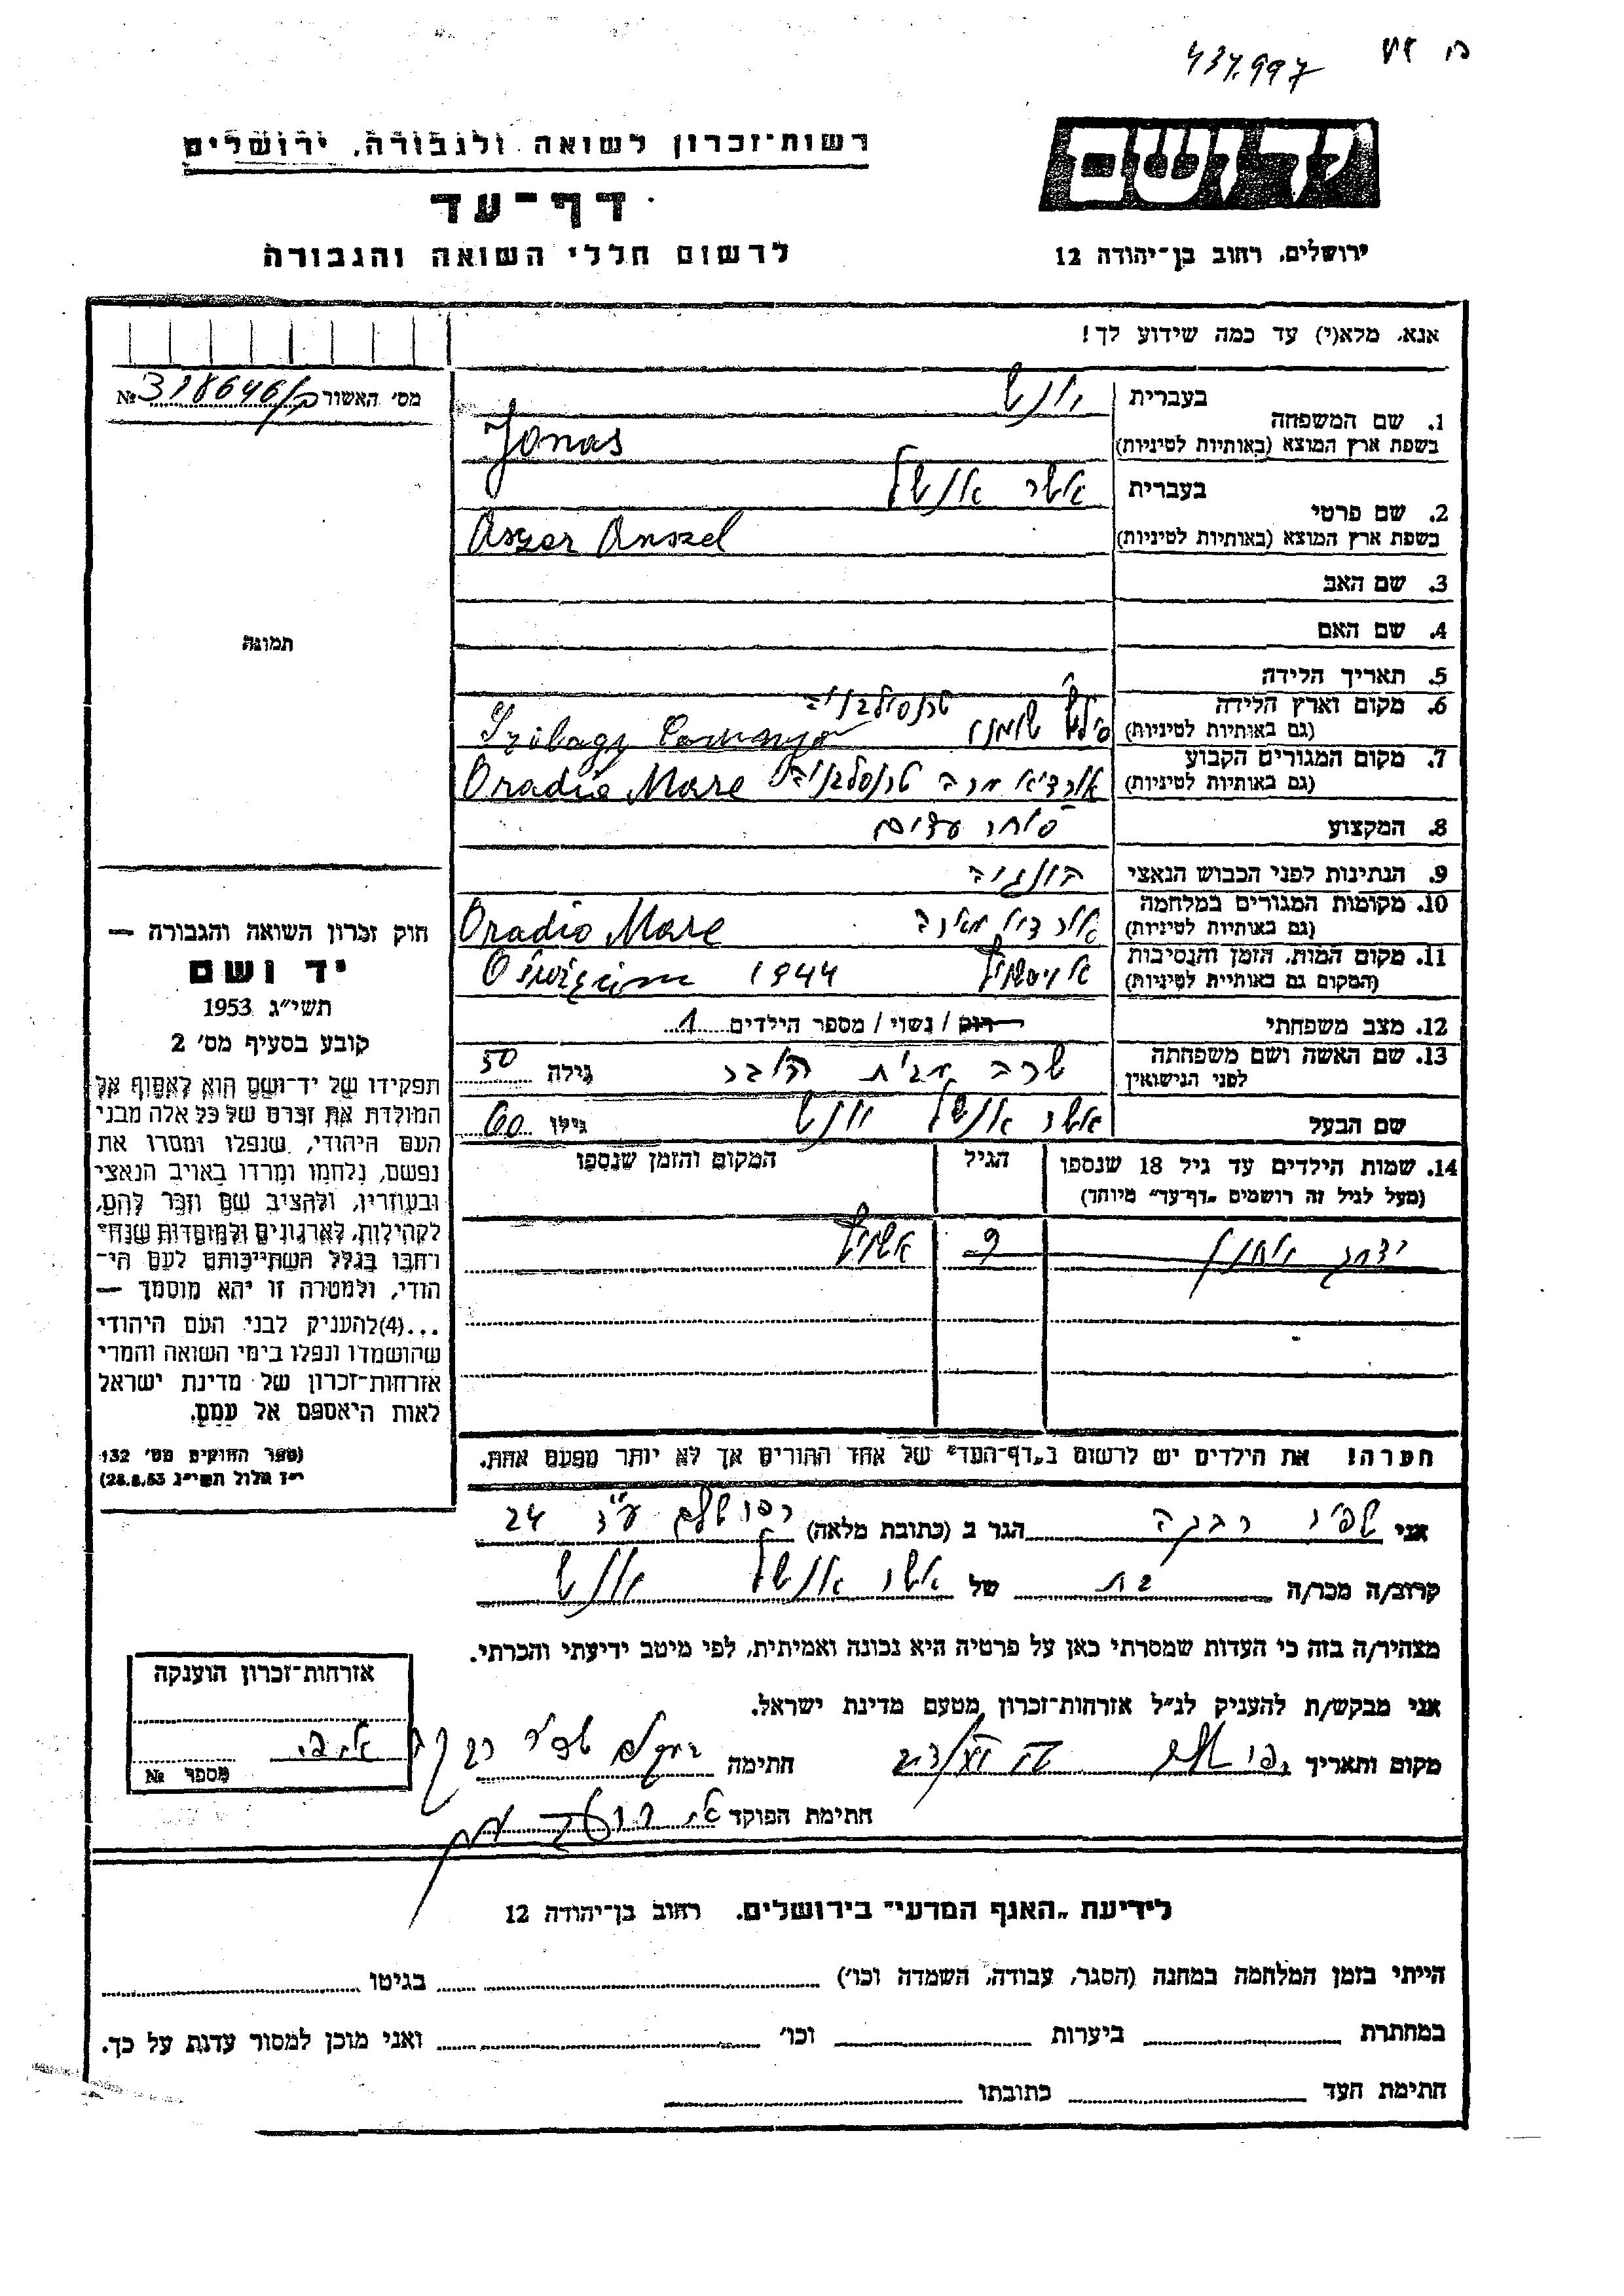 437.997
רשות־זכרון לשואה ולגבורה, ירושלים
יד ושם
דף־עד
לרשום חללי השואה והגבורה
ירושלים, רחוב בן־יהודה 12
אנא, מלא(י) עד כמה שידוע לך!
מס׳ האשור № 318646
1. שם המשפחה
בעברית יונש
בשפת ארץ המוצא (באותיות לטיניות) Jonas
2. שם פרטי
בעברית אשר אנשל
בשפת ארץ המוצא (באותיות לטיניות) Aszer Anszel
3. שם האב
4. שם האם
5. תאריך הלידה
6. מקום וארץ הלידה
(גם באותיות לטיניות) טרנסילבניה Szilagy
7. מקום המגורים הקבוע
(גם באותיות לטיניות) טרנסלבניה Oradia Mare
8. המקצוע סוחר עצים
9. הנתינות לפני הכבוש הנאצי הונגריה
10. מקומות המגורים במלחמה
(גם באותיות לטיניות) Oradia Mare
11. מקום המות, הזמן והנסיבות
(המקום גם באותיית לטיניות) Oświęcim 1944
12. מצב משפחתי רוק / נשוי / מספר הילדים 1
13. שם האשה ושם משפחתה
לפני הנישואין שרה מבית גילה 50
שם הבעל אשר אנשל יונש גילו 60
14. שמות הילדים עד גיל 18 שנספו
(מעל לגיל זה רושמים „דף־עד״ מיוחד)
הגיל
המקום והזמן שנספו
9 אושויץ
הערה! את הילדים יש לרשום ב„דף־העד״ של אחד ההורים אך לא יותר מפעם אחת.
תמונה
חוק זכרון השואה והגבורה —
יד ושם
תשי״ג 1953
קובע בסעיף מס׳ 2
תפקידו של יד־ושם הוא לאסוף אל
המולדת את זכרם של כל אלה מבני
העם היהודי, שנפלו ומסרו את
נפשם, נלחמו ומרדו באויב הנאצי
ובעוזריו, ולהציב שם וזכר להם,
לקהילות, לארגונים ולמוסדות שנח־
רחבו בגלל השתייכותם לעם הי־
הודי, ולמטרה זו יהא מוסמך —
...(4)להעניק לבני העם היהודי
שהושמדו ונפלו בימי השואה והמרי
אזרחות־זכרון של מדינת ישראל
לאות היאספם אל עמם.
(ספר החוקים מס׳ 132
י״ז אלול תשי״ג 28.8.53)
אני שפיר רבקה הגר ב (כתובת מלאה) 24
קרוב/ה מכר/ה בת של אשר אנשל יונש
מצהיר/ה בזה כי העדות שמסרתי כאן על פרטיה היא נכונה ואמיתית, לפי מיטב ידיעתי והכרתי.
אני מבקש/ת להעניק לנ״ל אזרחות־זכרון מטעם מדינת ישראל.
מקום ותאריך חתימה שפיר רבקה
חתימת הפוקד
אזרחות־זכרון הוענקה
מספר №
לידיעת „האגף המדעי״ בירושלים. רחוב בן־יהודה 12
הייתי בזמן המלחמה במחנה (הסגר, עבודה, השמדה וכו׳) בגיטו
במחתרת ביערות וכו׳ ואני מוכן למסור עדות על כך.
חתימת העד כתובתו